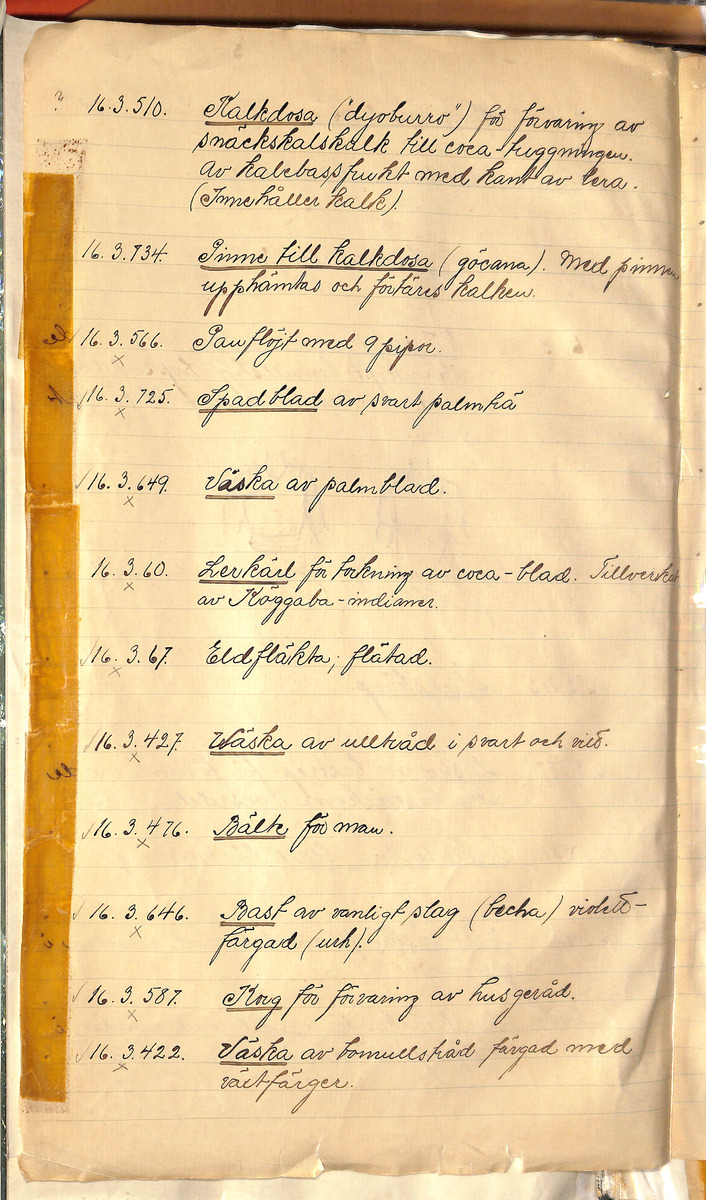 ? 16.3.510. Kalkdosa ("dyoburro") för förvaring av
snäckskalskalk till coca-tuggningen.
Av kalebassfrukt med kant av lera.
(Innehåller kalk).
16.3.734. Pinne till kalkdosa (gócana). Med pinnen
upphämtas och förtäres kalken.
16.3.566. Panflöjt med 9 pipor.
16.3.725. Spadblad av svart palmträ
16.3.649. Väska av palmblad.
16.3.60. Lerkärl för torkning av coca-blad. Tillverkat
av Kággaba-indianer.
16.3.67. Eldfläkta, flätad.
16.3.427. Väska av ulltråd i svart och vitt.
16.3.476. Bälte för man.
16.3.646. Bast av vanligt slag (becha) violett-
färgad (urh).
16.3.587. Korg för förvaring av husgeråd.
16.3.422. Väska av bomullstråd färgad med
växtfärger.